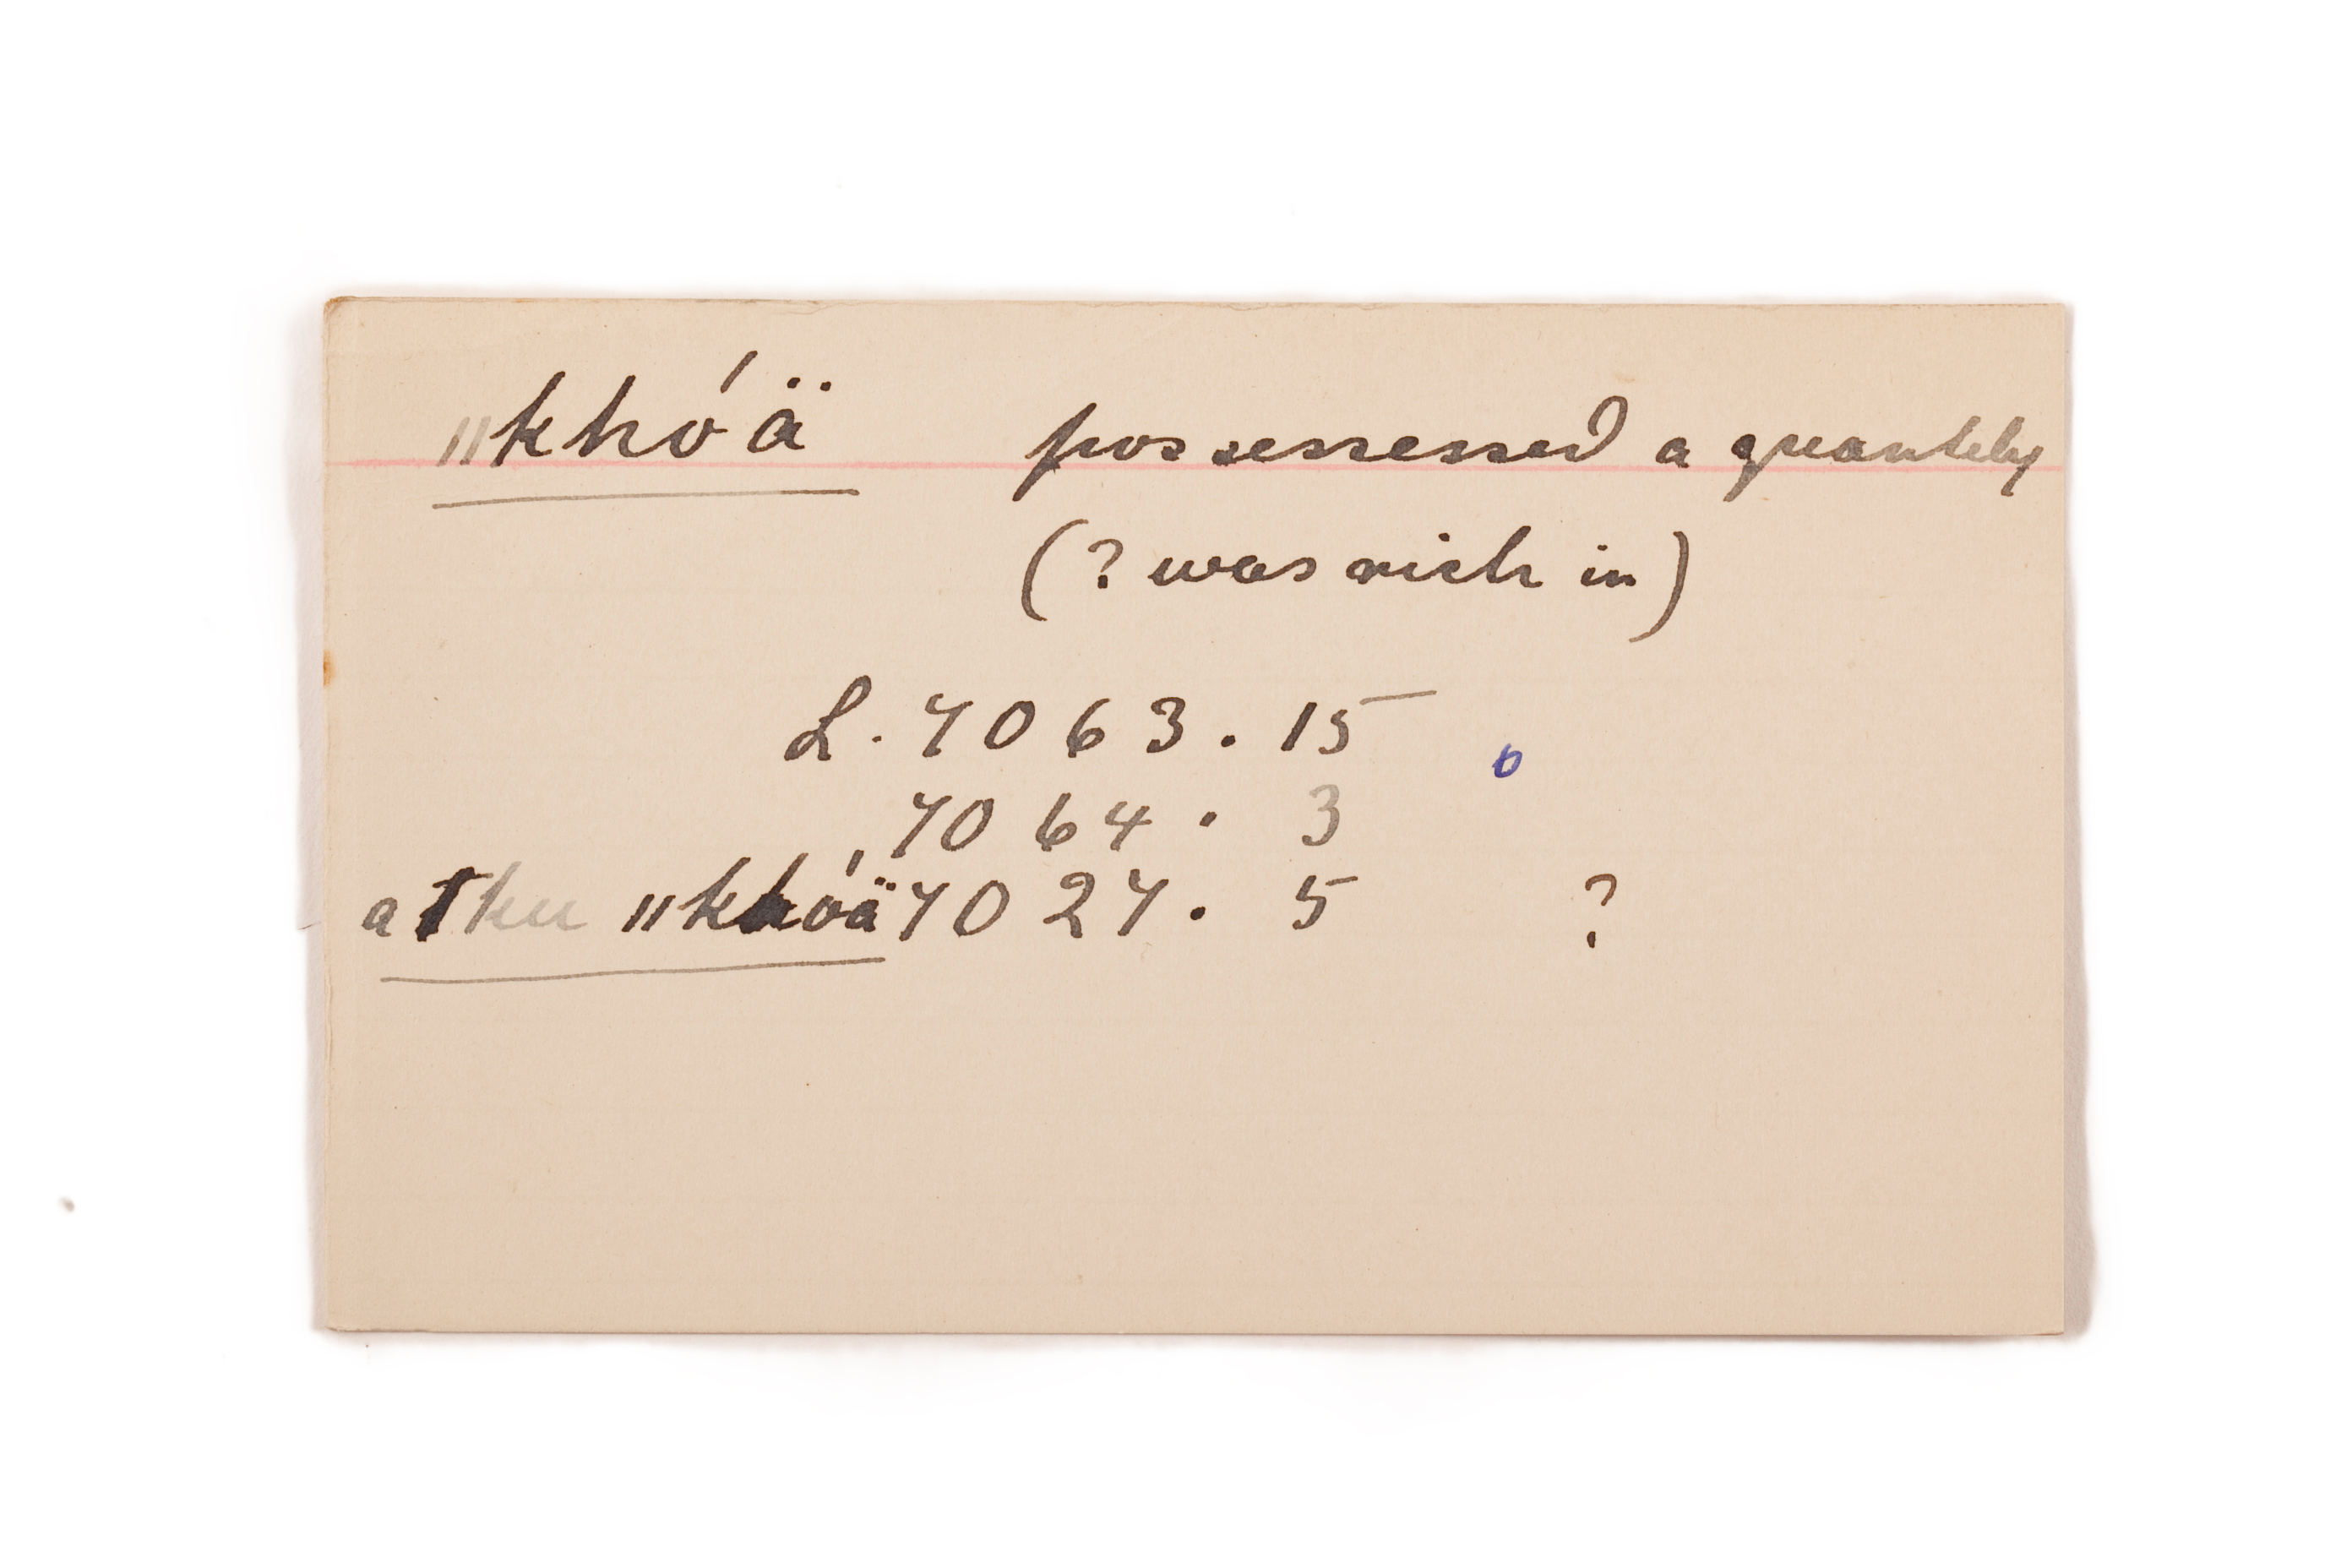 ǁkhóä possessed a quantity
(? was rich in)
L. 7063. 15
7064. 3
a ǀku ǁkhóä 7027. 5 ?